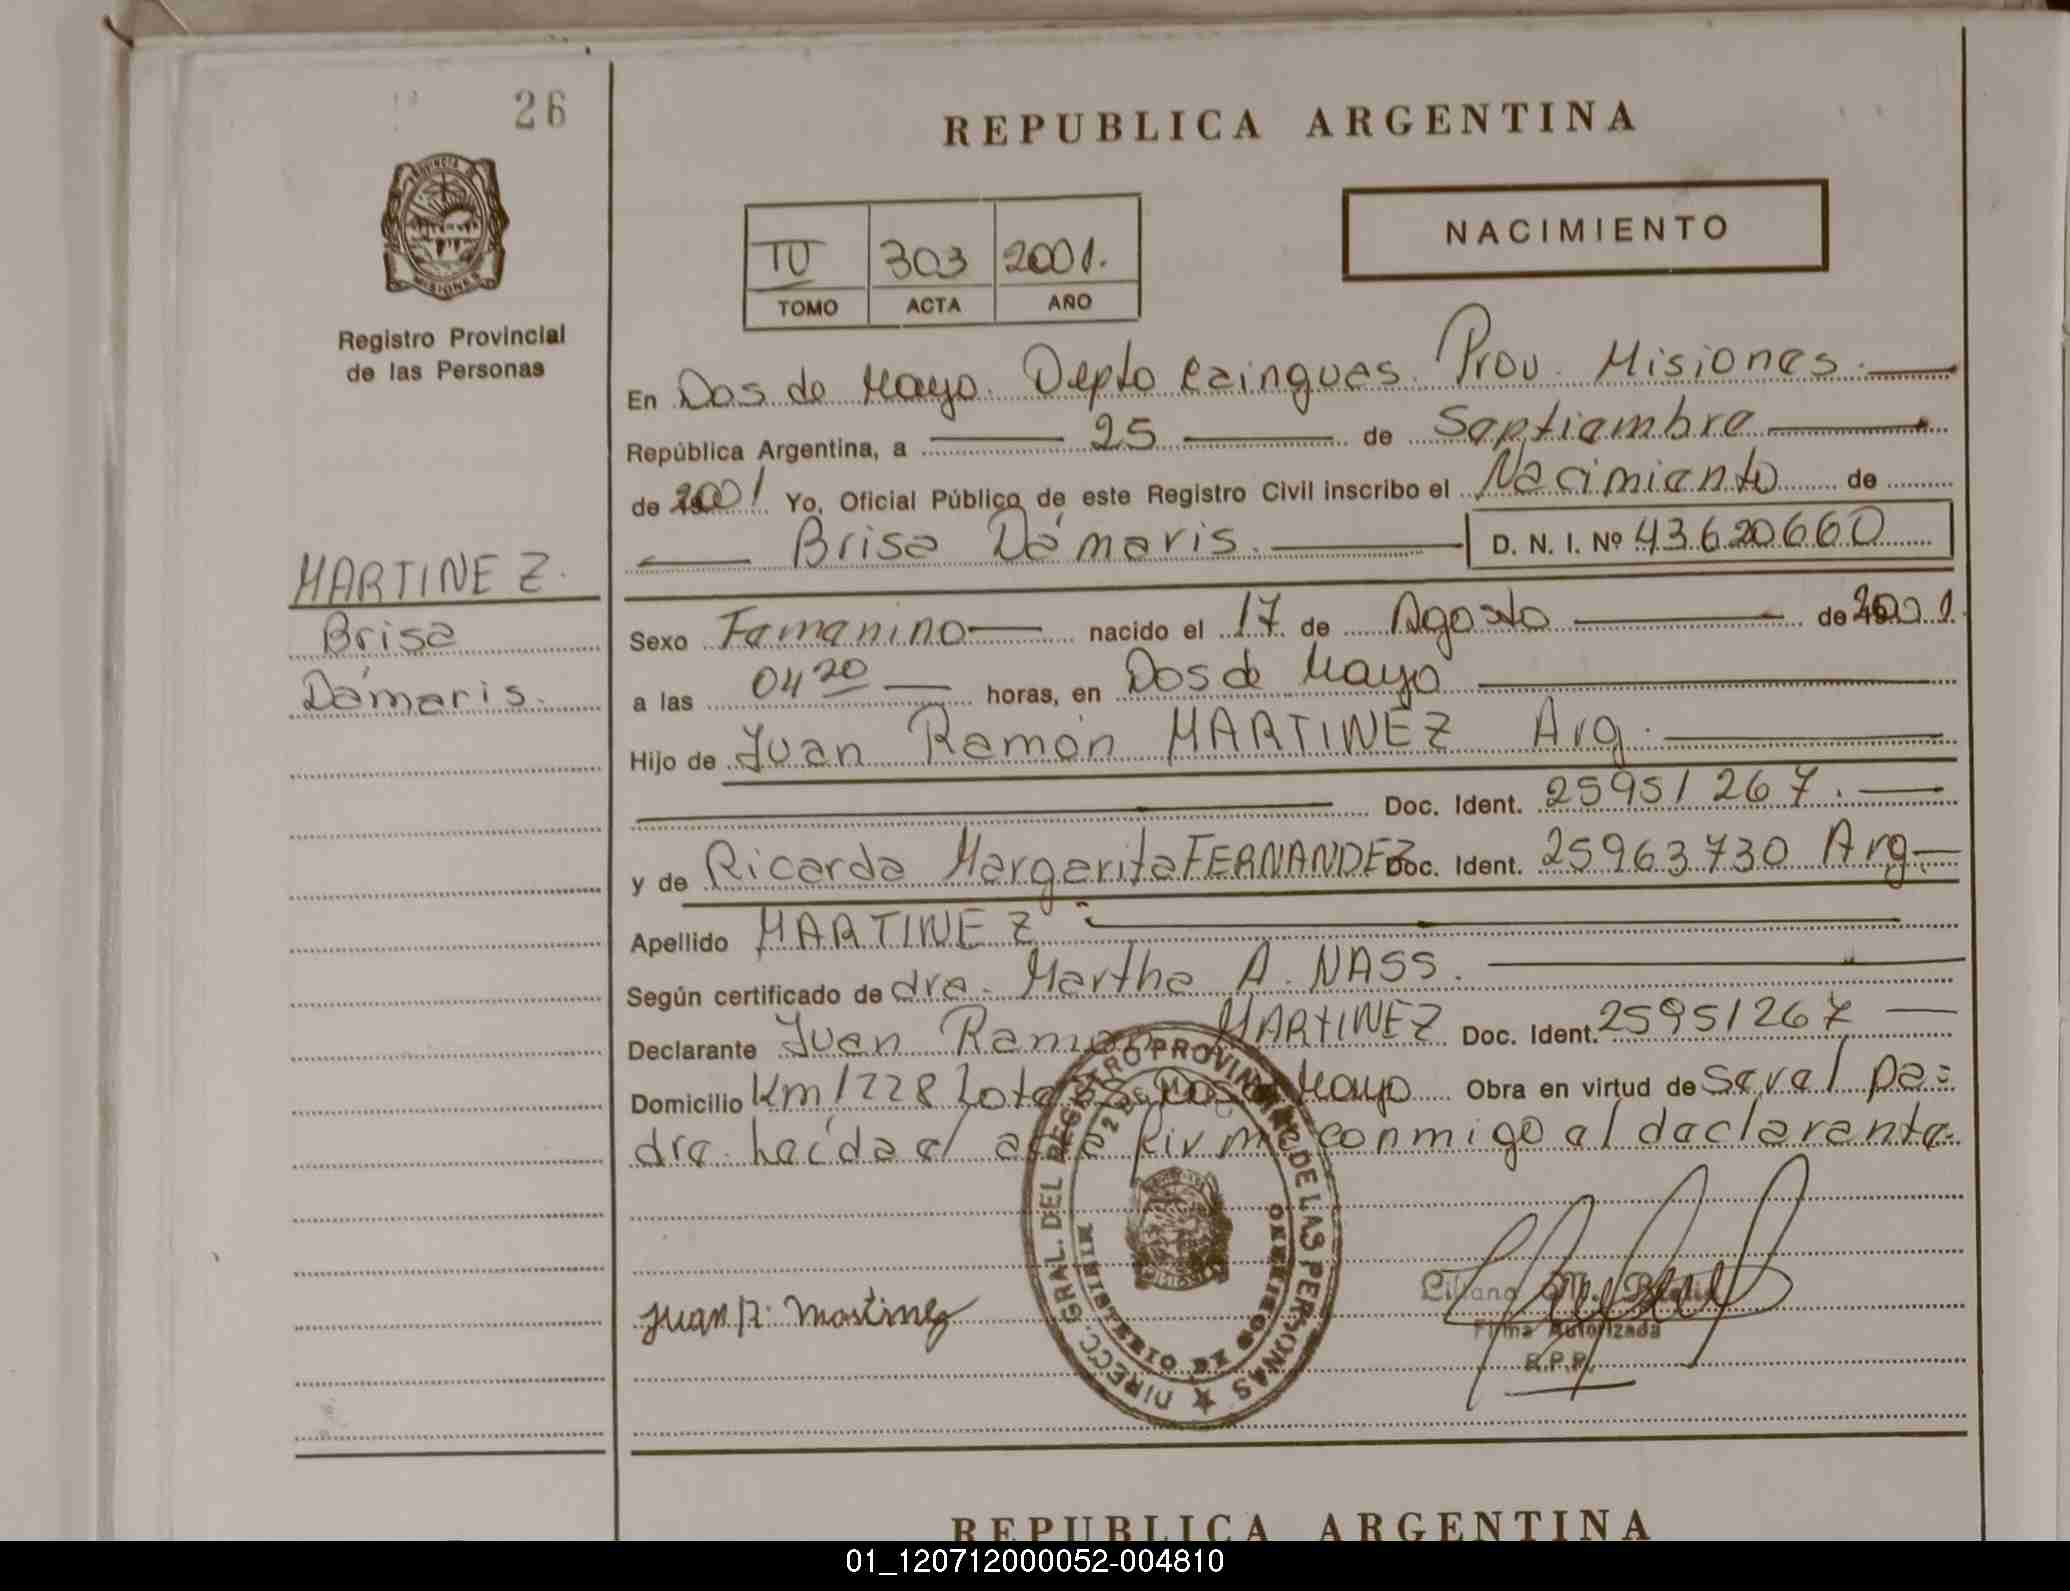 26
REPUBLICA ARGENTINA
PROVINCIA DE
MISIONES
Registro Provincial
de las Personas
NACIMIENTO
IV 303 2001.
TOMO ACTA AÑO
En Dos de Mayo. Depto Cainguas. Prov. Misiones.
República Argentina, a 25 de Septiembre
de 2001 Yo, Oficial Público de este Registro Civil inscribo el Nacimiento de
Brisa Dámaris. D. N. I. Nº 43.620660
MARTINEZ.
Brisa
Dámaris.
Sexo Femenino nacido el 17 de Agosto de 2001.
a las 04 20 horas, en Dos de Mayo
Hijo de Juan Ramón MARTINEZ Arg.
Doc. Ident. 25951267.
y de Ricarda Margarita FERNANDEZ Doc. Ident. 25963730 Arg
Apellido MARTINEZ
Según certificado de dra. Martha A. NASS.
Declarante Juan Ramon MARTINEZ Doc. Ident. 25951267
Domicilio Km 1228 Lote Dos de Mayo Obra en virtud de Ser el pa=
dre. Leída el acta firma conmigo el declarante.
DIRECC. GRAL. DEL REGISTRO PROVINCIAL DE LAS PERSONAS
MINISTERIO DE GOBIERNO
Juan R. Martinez
Liliana M.
Firma Autorizada
R.P.P.
REPUBLICA ARGENTINA
01_120712000052-004810